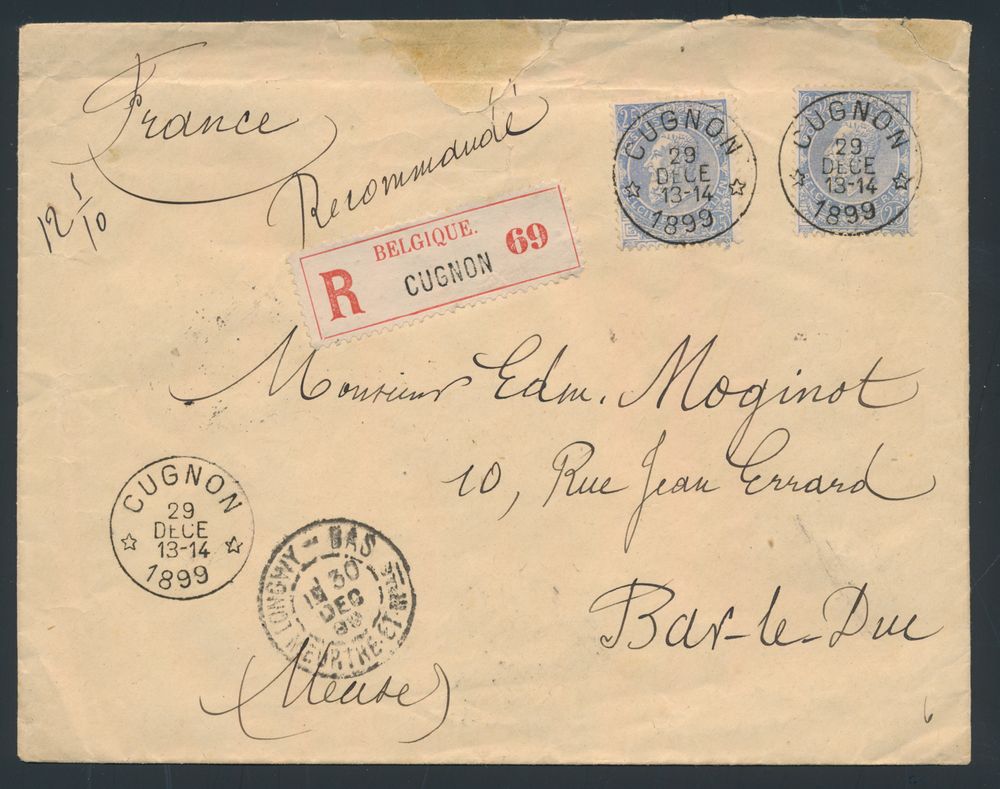 France
Recommandé
12 5/10
CUGNON
29
DECE
13-14
1899
CUGNON
29
DECE
13-14
1899
BELGIQUE.
R CUGNON 69
Monsieur Edm. Moginot
10, Rue Jean Errard
Bar-le-Duc
(Meuse)
CUGNON
29
DECE
13-14
1899
LONGWY - BAS
30
DEC
99
MEURTHE-ET-M